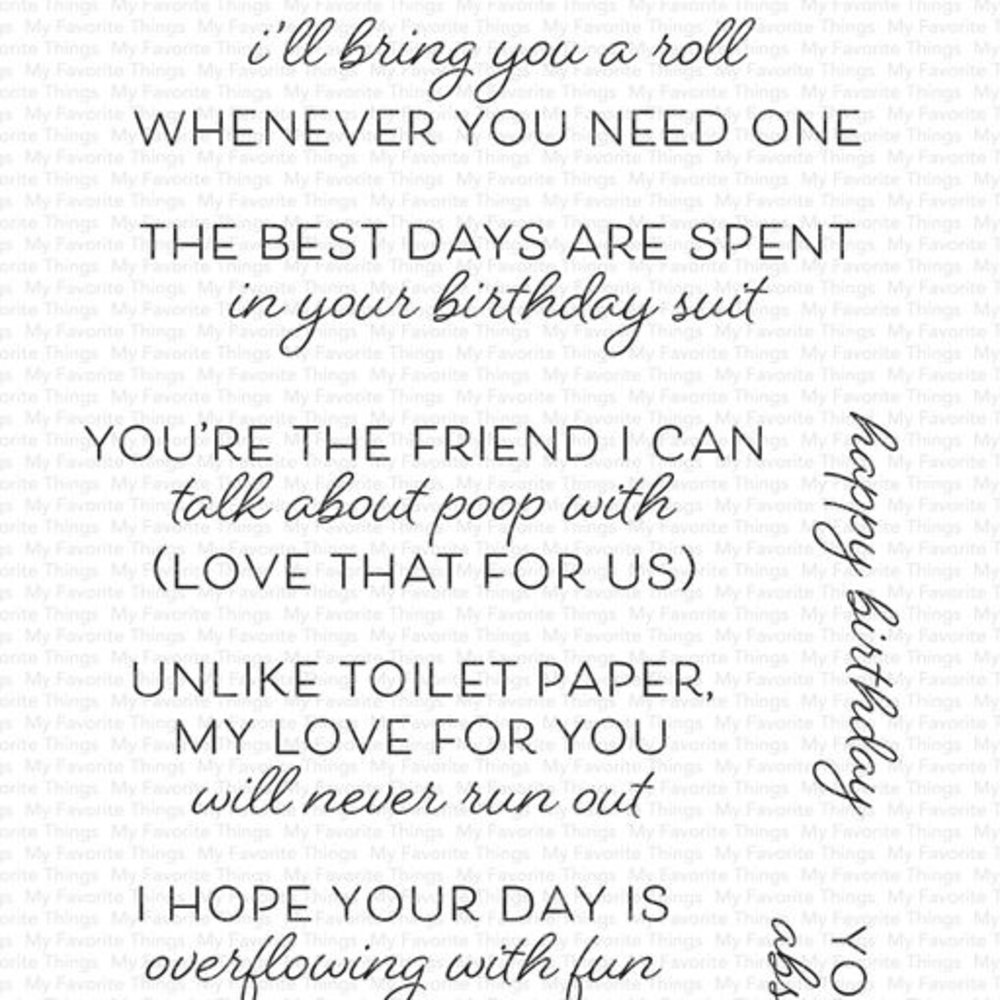 i'll bring you a roll
WHENEVER YOU NEED ONE
THE BEST DAYS ARE SPENT
in your birthday suit
YOU'RE THE FRIEND I CAN
talk about poop with
(LOVE THAT FOR US)
UNLIKE TOILET PAPER,
MY LOVE FOR YOU
will never run out
I HOPE YOUR DAY IS
overflowing with fun
happy birthday